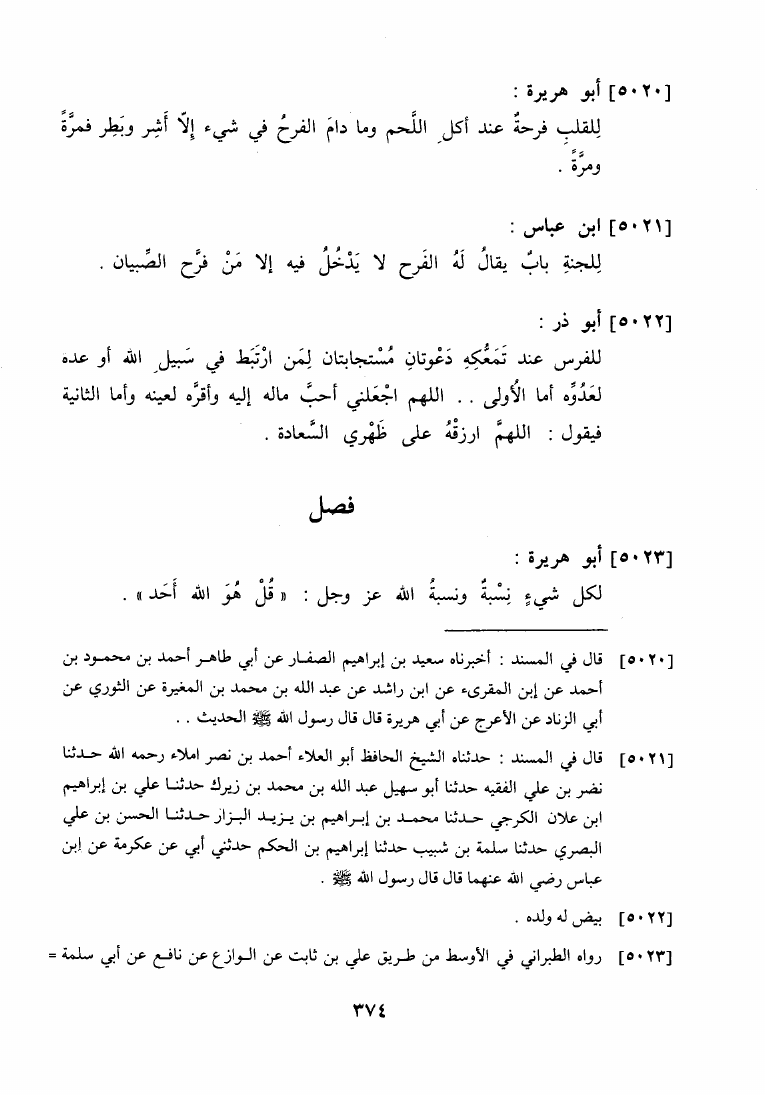 [٥٠٢٠] أبو هريرة :
لِلقلبِ فرحةٌ عند أكلِ اللَّحم وما دامَ الفرحُ في شيء إلاّ أَشِر وبَطِر فمرَّةً
ومرَّةً .
[٥٠٢١] ابن عباس :
لِلجنةِ بابٌ يقالُ لَهُ الفَرح لا يَدْخُلُ فيه إلا مَنْ فرَّح الصِّبيان .
[٥٠٢٢] أبو ذر :
للفرس عند تَمَعُّكِهِ دَعْوتانِ مُسْتجابتان لِمَن ارْتَبَط في سَبيلِ الله أو عده
لعَدُوِّه أما الأولى . . اللهم اجْعَلني أحبَّ ماله إليه وأقرَّه لعينه وأما الثانية
فيقول : اللهمَّ ارزقْهُ على ظَهْري السَّعادة .
فصل
[٥٠٢٣] أبو هريرة :
لكل شيءٍ نِسْبةٌ ونسبةُ الله عز وجل : « قُلْ هُوَ الله أَحَد » .
[٥٠٢٠] قال في المسند : أخبرناه سعيد بن إبراهيم الصفار عن أبي طاهر أحمد بن محمود بن
أحمد عن إبن المقرىء عن ابن راشد عن عبد الله بن محمد بن المغيرة عن الثوري عن
أبي الزناد عن الأعرج عن أبي هريرة قال قال رسول الله ﷺ الحديث . .
[٥٠٢١] قال في المسند : حدثناه الشيخ الحافظ أبو العلاء أحمد بن نصر املاء رحمه الله حدثنا
نضر بن علي الفقيه حدثنا أبو سهيل عبد الله بن محمد بن زيرك حدثنا علي بن إبراهيم
ابن علان الكرجي حدثنا محمد بن إبراهيم بن يزيد البزار حدثنا الحسن بن علي
البصري حدثنا سلمة بن شبيب حدثنا إبراهيم بن الحكم حدثني أبي عن عكرمة عن إبن
عباس رضي الله عنهما قال قال رسول الله ﷺ .
[٥٠٢٢] بيض له ولده .
[٥٠٢٣] رواه الطبراني في الأوسط من طريق علي بن ثابت عن الوازع عن نافع عن أبي سلمة =
٣٧٤